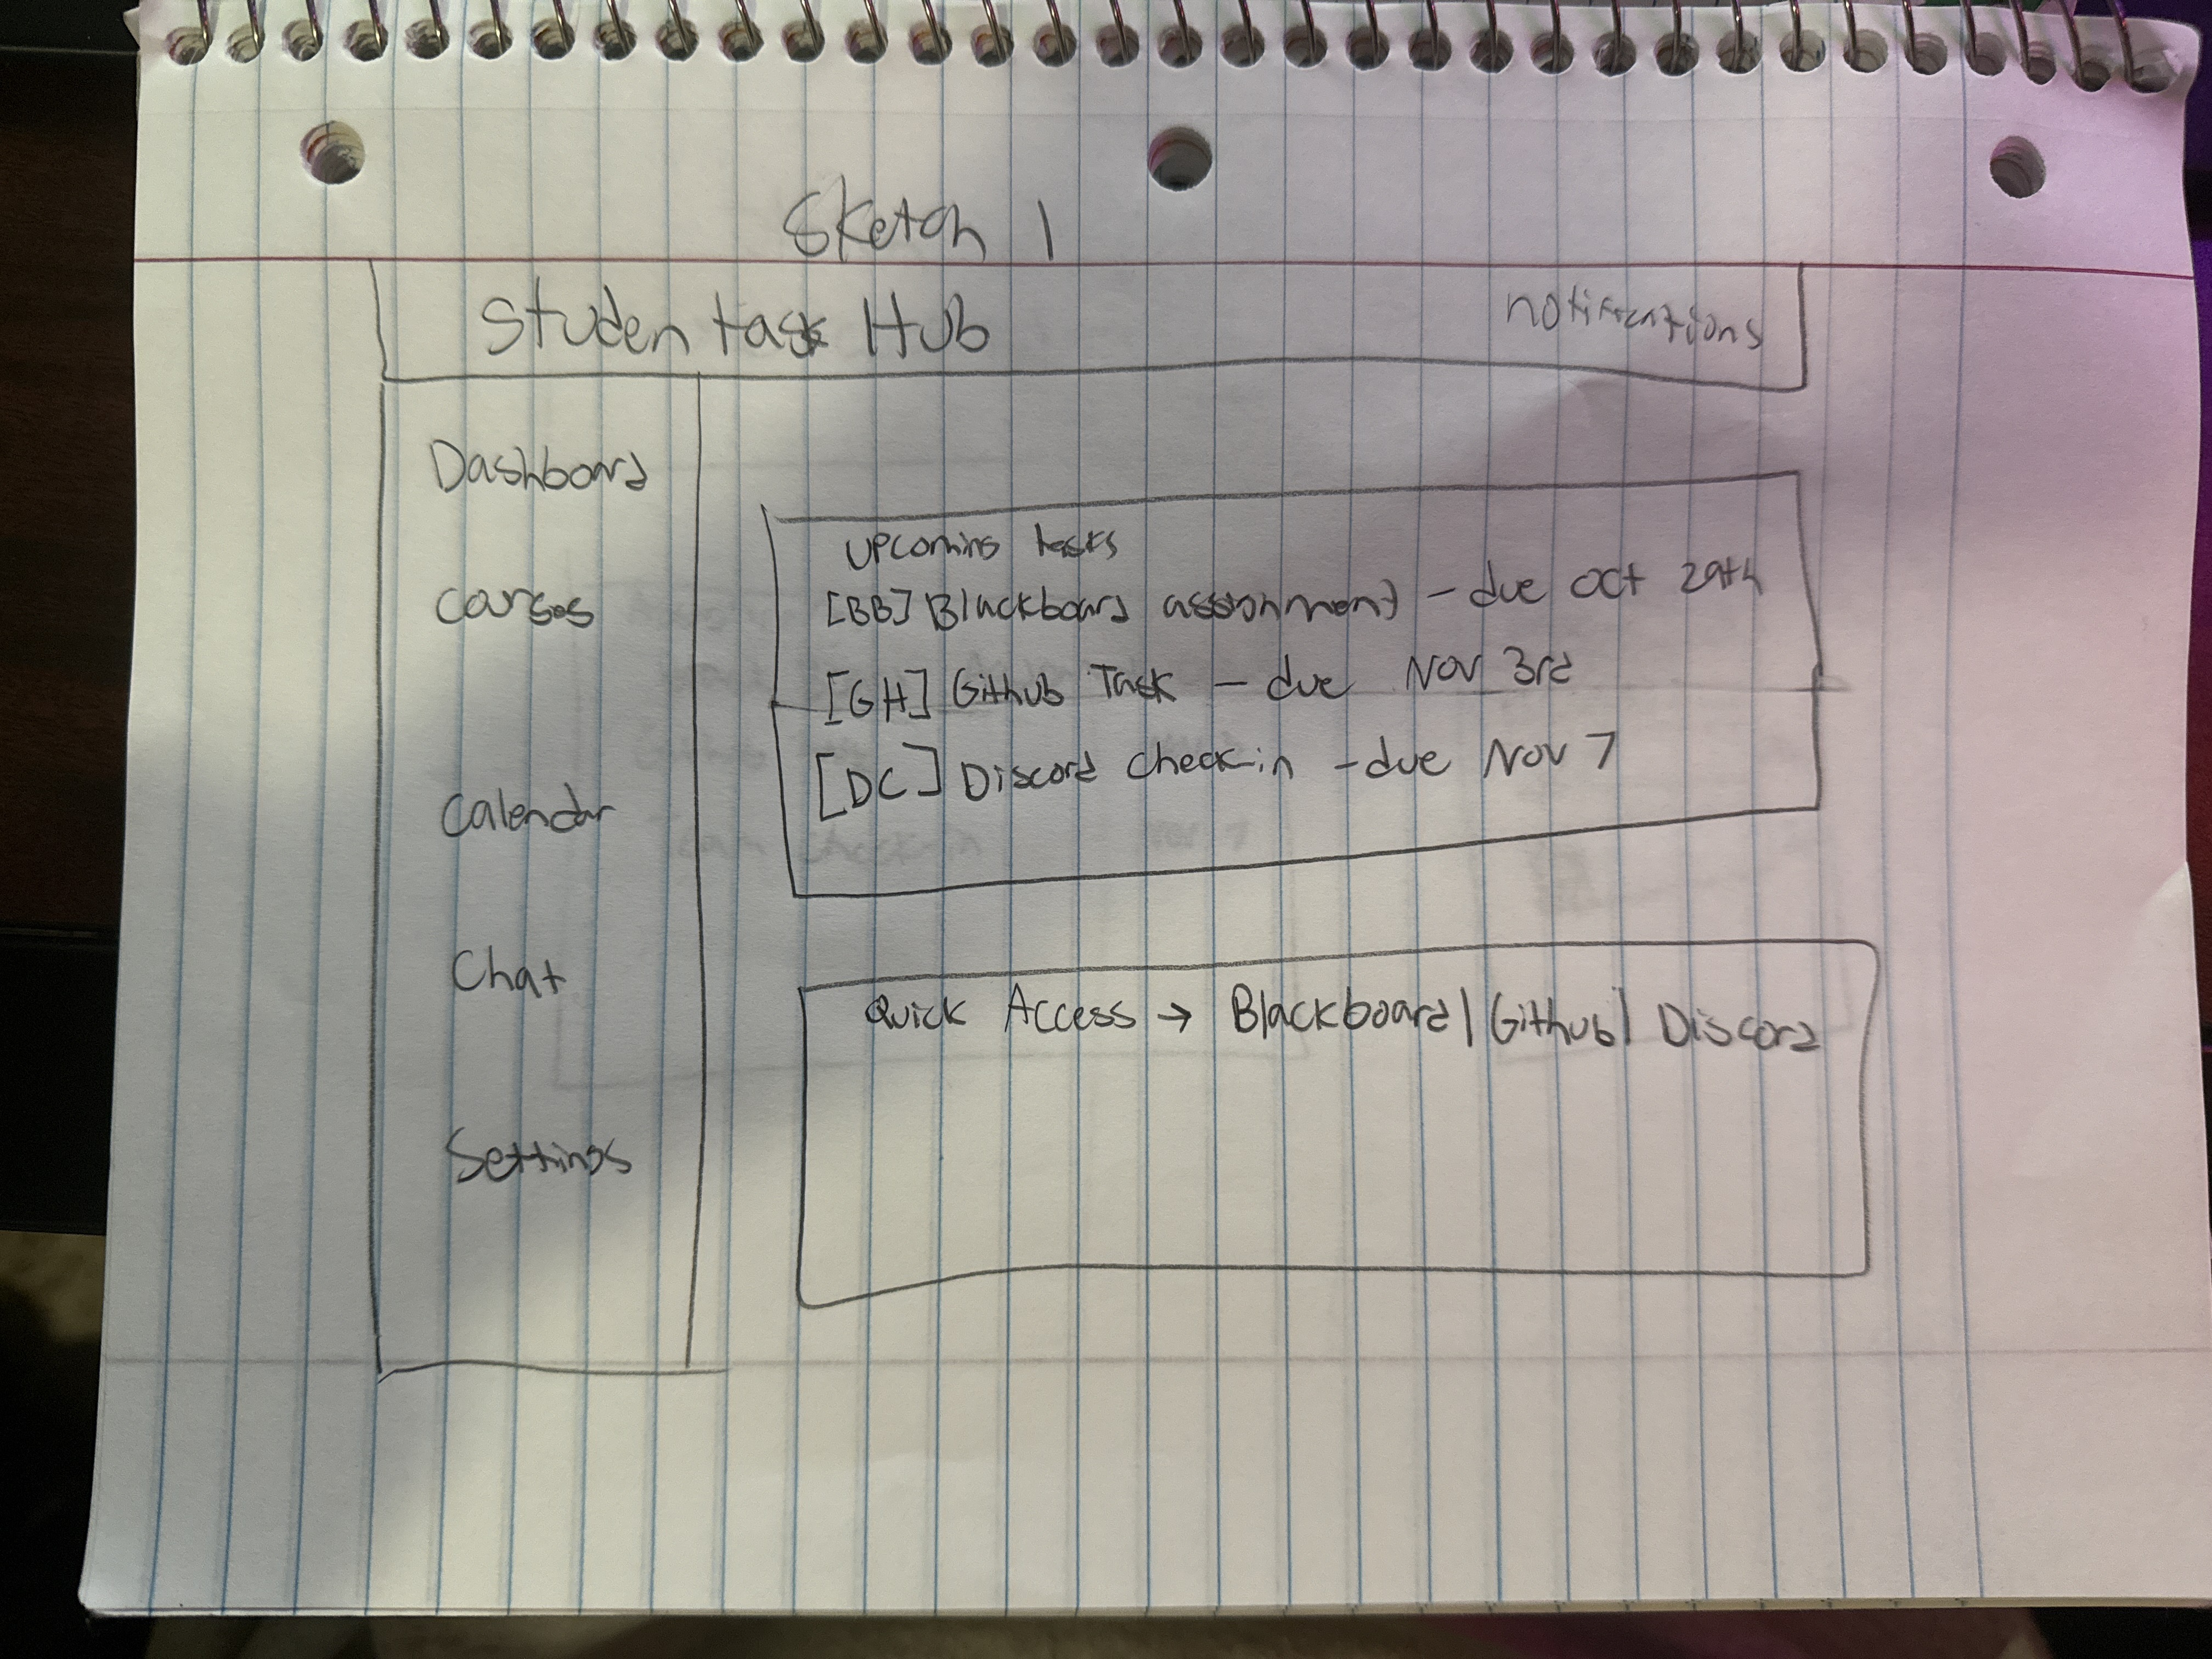 Sketch 1
Studen task Hub notifications
Dashboard
Courses
Calendar
Chat
Settings
Upcoming tasks
[BB] Blackboard assignment - due oct 29th
[GH] Github Task - due Nov 3rd
[DC] Discord check-in - due Nov 7
Quick Access → Blackboard | Github | Discord